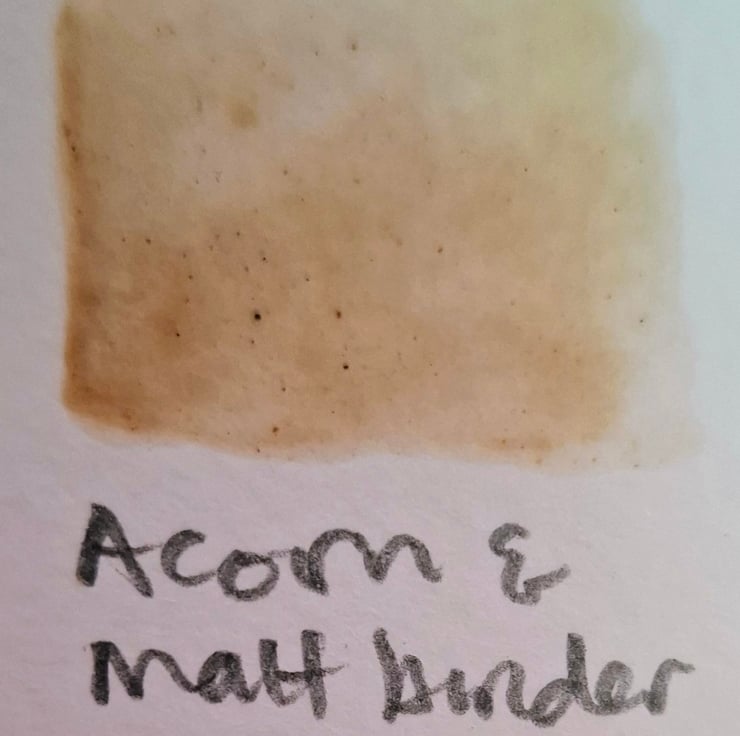 Acorn &
Matt binder